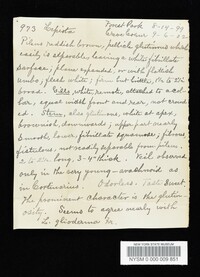 Forest Park 8-14-99
973 Lepiota
Pileus reddish brown, pellicle glutinous which
easily is separable, leaving a white fibrillate
surface; plane expanded, or with flattish
umbo; flesh white; firm but brittle, 1½ to 2½ in
broad. Gills white, remote, attached to a col-
lar, equal width front and rear, not crowd-
ed. Stem, also glutinous, white at apex,
brownish, downwards; upper part nearly
smooth, lower, fibrillate squamose; fibrous,
fistulous, not readily separable from pileus,
2 to 2½ in. long, 3-4" thick. Veil observed
only in the very young - arachnoid as
in Cortinarius. Odorless. Taste sweet.
The prominent character is the glutin-
osity. Seems to agree nearly with
L. glioderma Fr.
NEW YORK STATE MUSEUM
NYSM D 000 009 851